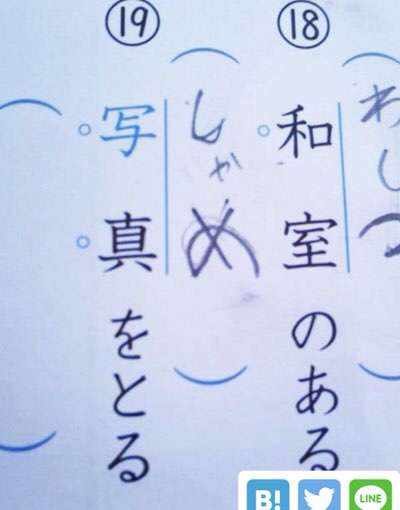 ⑱
和室のある
わしつ
⑲
写真をとる
しゃめ
B!
LINE